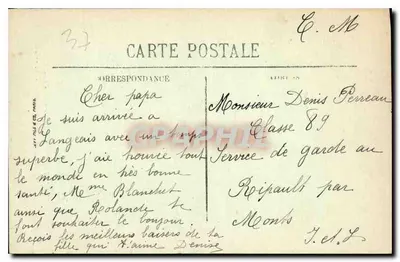 37
C. M
CARTE POSTALE
CORRESPONDANCE
Cher papa
Je suis arrivée a
Langeais avec un temps
superbe, j'aie trouvée tout
le monde en très bonne
santé, Mme Blanchet
ainsi que Rolande te
font souhaiter le bonjour.
Reçois les meilleurs baisers de ta
fille qui t'aime Denise
Monsieur Denis Perreau
Classe 89
Service de garde au
Ripault par
Monts
I. et L